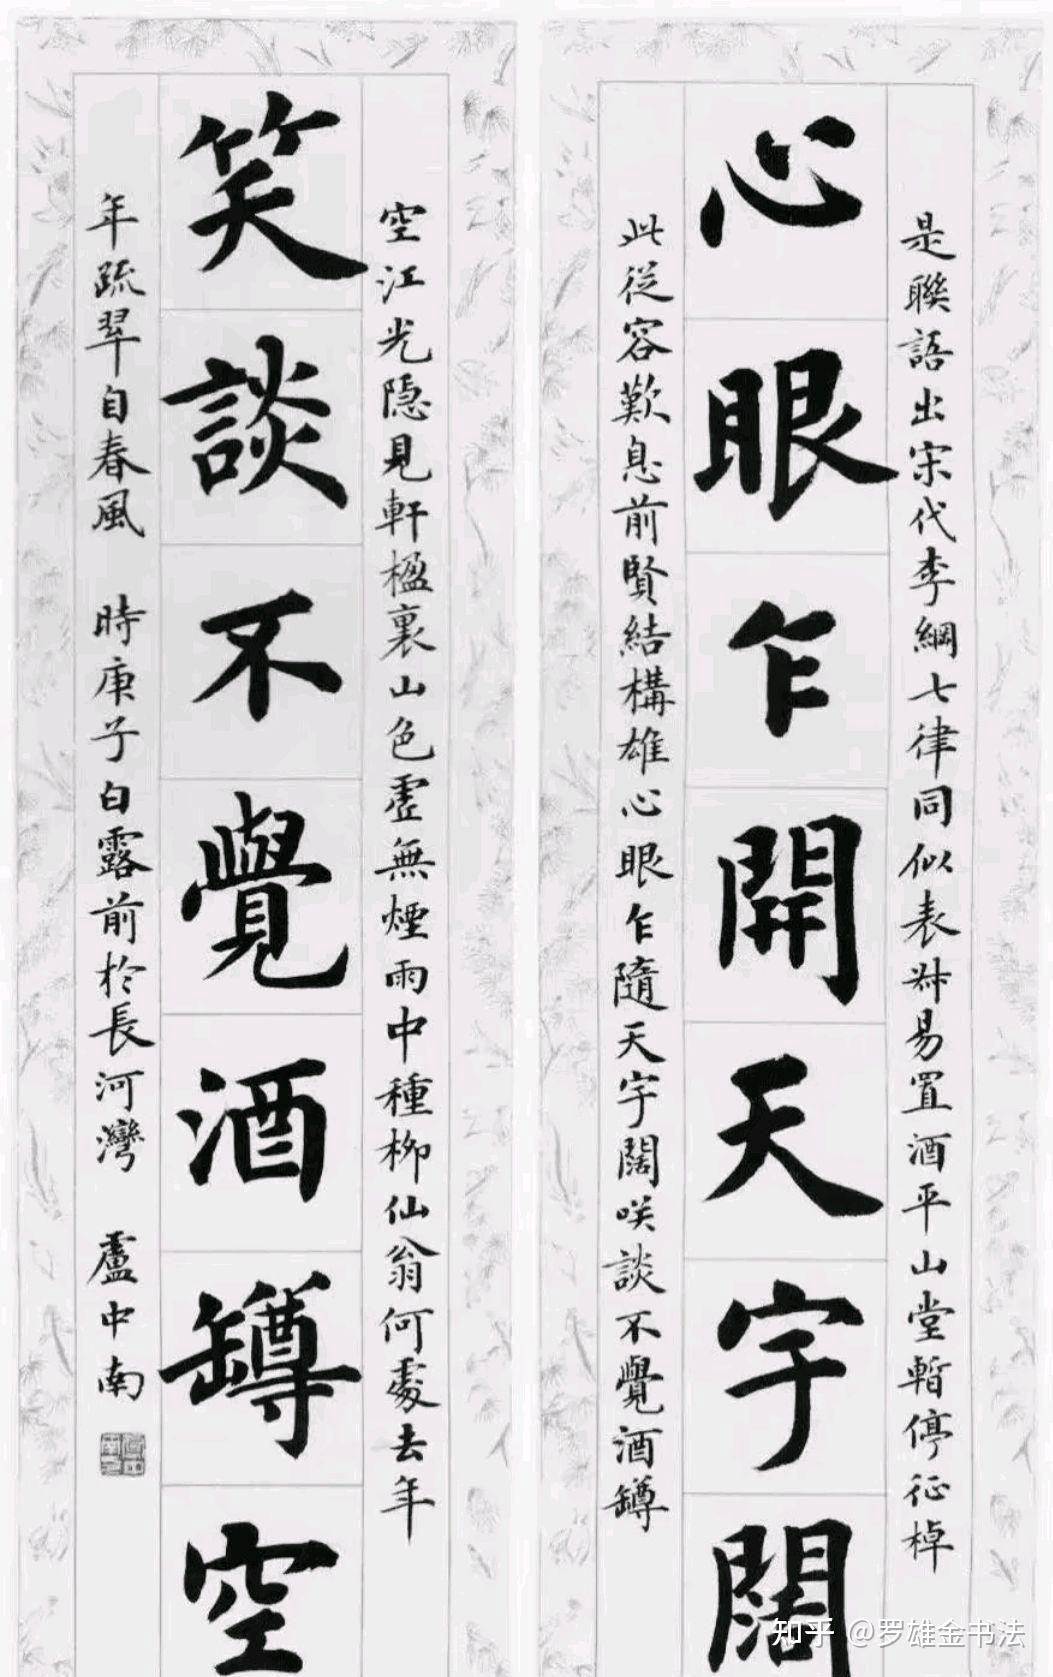 是聯語出宋代李綱七律同似表叔易置酒平山堂暫停征棹
心眼乍開天宇闊
此從容歎息前賢結構雄心眼乍隨天宇闊咲談不覺酒罇
空江光隐見軒楹裏山色虛無煙雨中種柳仙翁何處去年
笑談不覺酒罇空
年疏翠自春風 時庚子白露前於長河灣 盧中南
知乎 @罗雄金书法